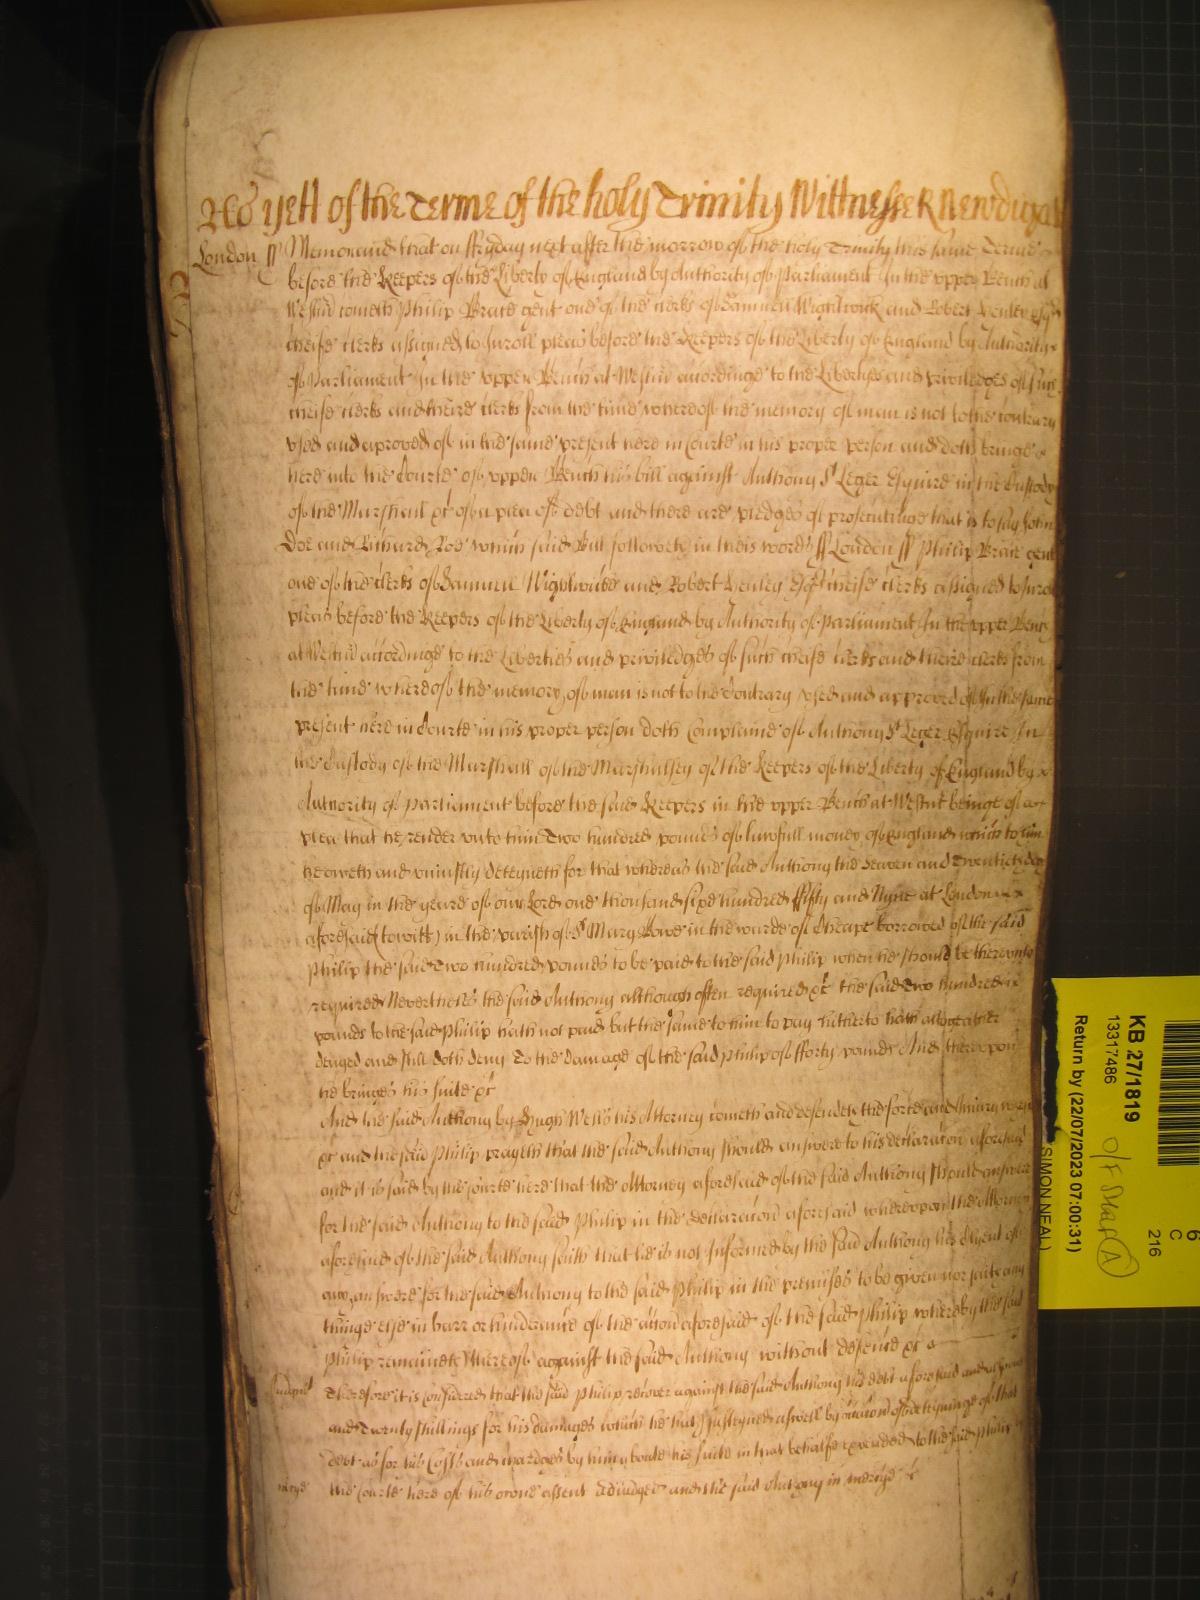 As yett of the Terme of the holy Trinity Wittnesse R Newdigate
London ss Memorand that on ffryday next after the morrow of the holy Trinity this same Terme
before the Keepers of the Liberty of England by Authority of Parliament In the upper Bench at
Westm cometh Philip Brace gent one of the clerks of Samuell Wightwick and Robert Henley Esqrs
cheife clerks assigned to Inroll pleas before the Keepers of the Liberty of England by Authority
of Parliament In the upper Bench at Westm accordinge to the Liberties and priviledges of such
cheife clerks and theire clerks from the time whereof the memory of man is not to the contrary
used and aproved of in the same present here in Courte in his proper person and doth bringe
here into the Courte of upper Bench his bill against Anthony St Leger Esquire in the Custody
of the Marshall &c of a plea of debt and there are pledges of prosecutinge that is to say John
Doe and Richard Roe which said Bill followeth in theis words ss London ss Philip Brace gent
one of the clerks of Samuell Wightwicke and Robert Henley Esqrs cheife clerks assigned to Inroll
pleas before the Keepers of the Liberty of England by Authority of Parliament In the upper Bench
at Westm accordinge to the Liberties and priviledges of such cheife clerks and theire clerks from
the time whereof the memory of man is not to the Contrary used and approved of in the same
present here in Courte in his proper person doth Complaine of Anthony St Leger Esquire In
the Custody of the Marshall of the Marshallsey of the Keepers of the Liberty of England by
Authority of Parliament before the said Keepers in the upper Bench at Westm beinge of a
plea that he render unto him Two hundred pounds of lawfull money of England which to him
he oweth and uniustly deteyneth for that whereas the said Anthony the Seaven and Twentieth day
of May in the yeare of our Lord one thousand sixe hundred ffifty and Nyne at London
aforesaid (to witt) in the parish of St Mary Bowe in the warde of Cheape borrowed of the said
Philip the said Two hundred pounds to be paid to the said Philip when he should be thereunto
required Neverthelesse the said Anthony although often required &c the said Two hundred
pounds to the said Philip hath not paid but the same to him to pay hitherto hath altogeather
denyed and still doth deny To the damage of the said Philip of fforty pounds And thereupon
he brings his suite &c
And the said Anthony by Hugh Wells his Attorney cometh and defendeth the force and Iniury when
&c and the said Philip prayeth that the said Anthony should answere to his declaracion aforesaid
and it is said by the Courte here that the Attorney aforesaid of the said Anthony should answere
for the said Anthony to the said Philip in the declaracion aforesaid whereupon the Attorney
aforesaid of the said Anthony saith that he is not Informed by the said Anthony his Clyent of
any answere for the said Anthony to the said Philip in the premisses to be given nor saith any
thinge else in barr or hinderance of the accion aforesaid of the said Philip whereby the said
Philip remaineth thereof against the said Anthony without defence &c
Judgmt Therefore it is considered that the said Philip recover against the said Anthony his debt aforesaid and
and Twenty shillings for his damages which he hath susteyned aswell by occasion of deteyninge of that
debt as for his Costs and chardges by him aboute his suite in that behalfe expended to the said Philip
mercye the Courte here of his owne assent Adiudged and the said Anthony in mercye &c
KB 27/1819
13317486
Return by (22/07/2023 07:00:31)
SIMON NEAL)
6
C
216
A